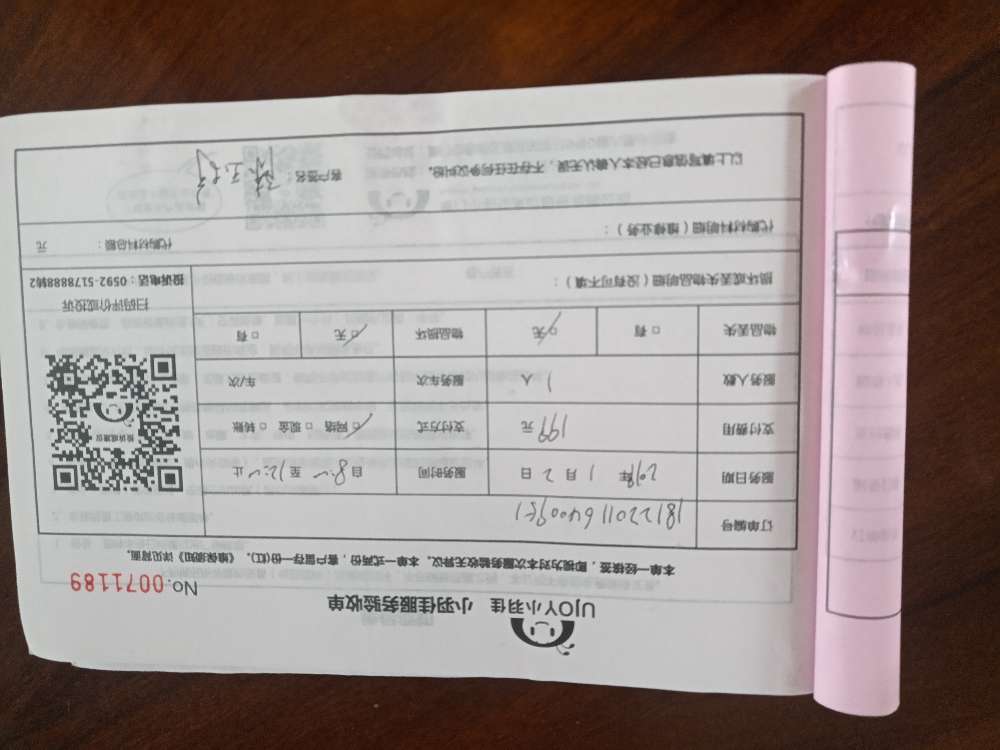 UJOY小羽佳 小羽佳服务验收单
No.0071189
本单一经续签，即视为对本次服务验收无异议。本单一式两份，客户留存一份(红)。《维保须知》详见背面。
订单编号
服务日期 2019年 1月2日 服务时间 自8:00至12:00止
支付费用 199元 支付方式 □网络 □现金 □转账
服务人数 1人 服务车次 车/次
物品丢失 □有 □无 物品损坏 □无 □有
投诉或建议
扫码评价或投诉
投诉电话：0592-5178888转2
损坏或丢失物品明细（没有可不填）：
代购材料明细（维修业务）： 代购材料总额： 元
以上填写信息已经本人确认无误，不存在任何争议纠纷。 客户签名：